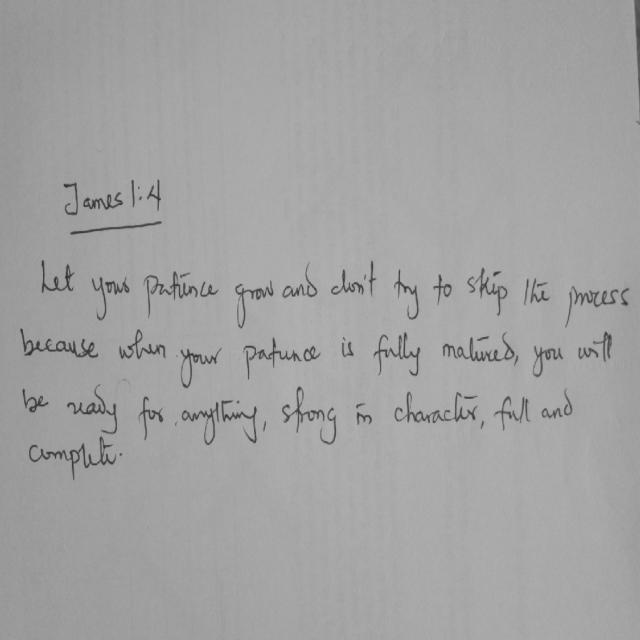 James 1:4
Let your patience grow and don't try to skip the process
because when your patience is fully matured, you will
be ready for anything, strong in character, full and
complete.